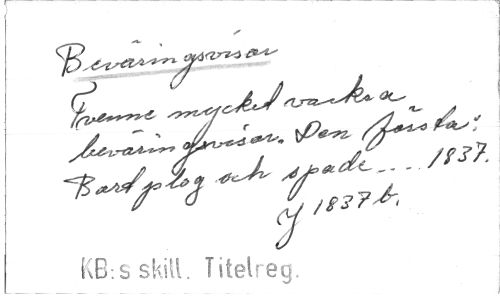 Beväringsvisor
Tvenne mycket vackra
beväringsvisor. Den första:
Bort plog och spade.... 1837.
Y 1837 b.
KB:s skill. Titelreg.